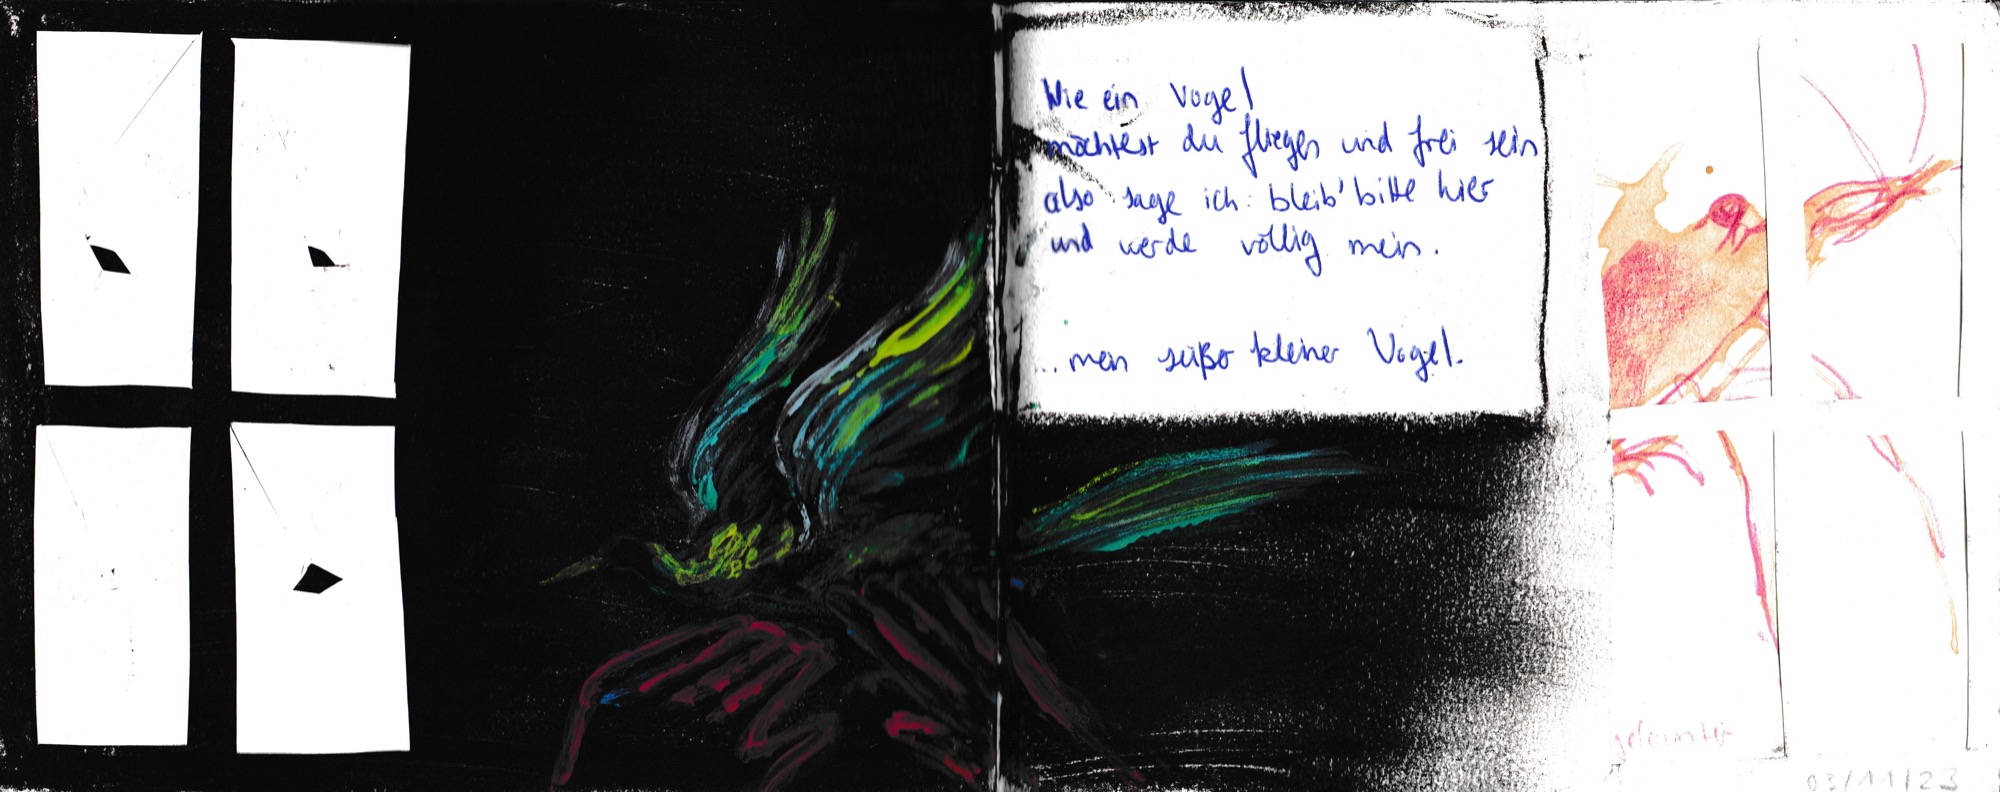 Wie ein Vogel
möchtest du fliegen und frei sein
also sage ich: bleib' bitte hier
und werde völlig mein.
...mein süßer kleiner Vogel.
03/11/23